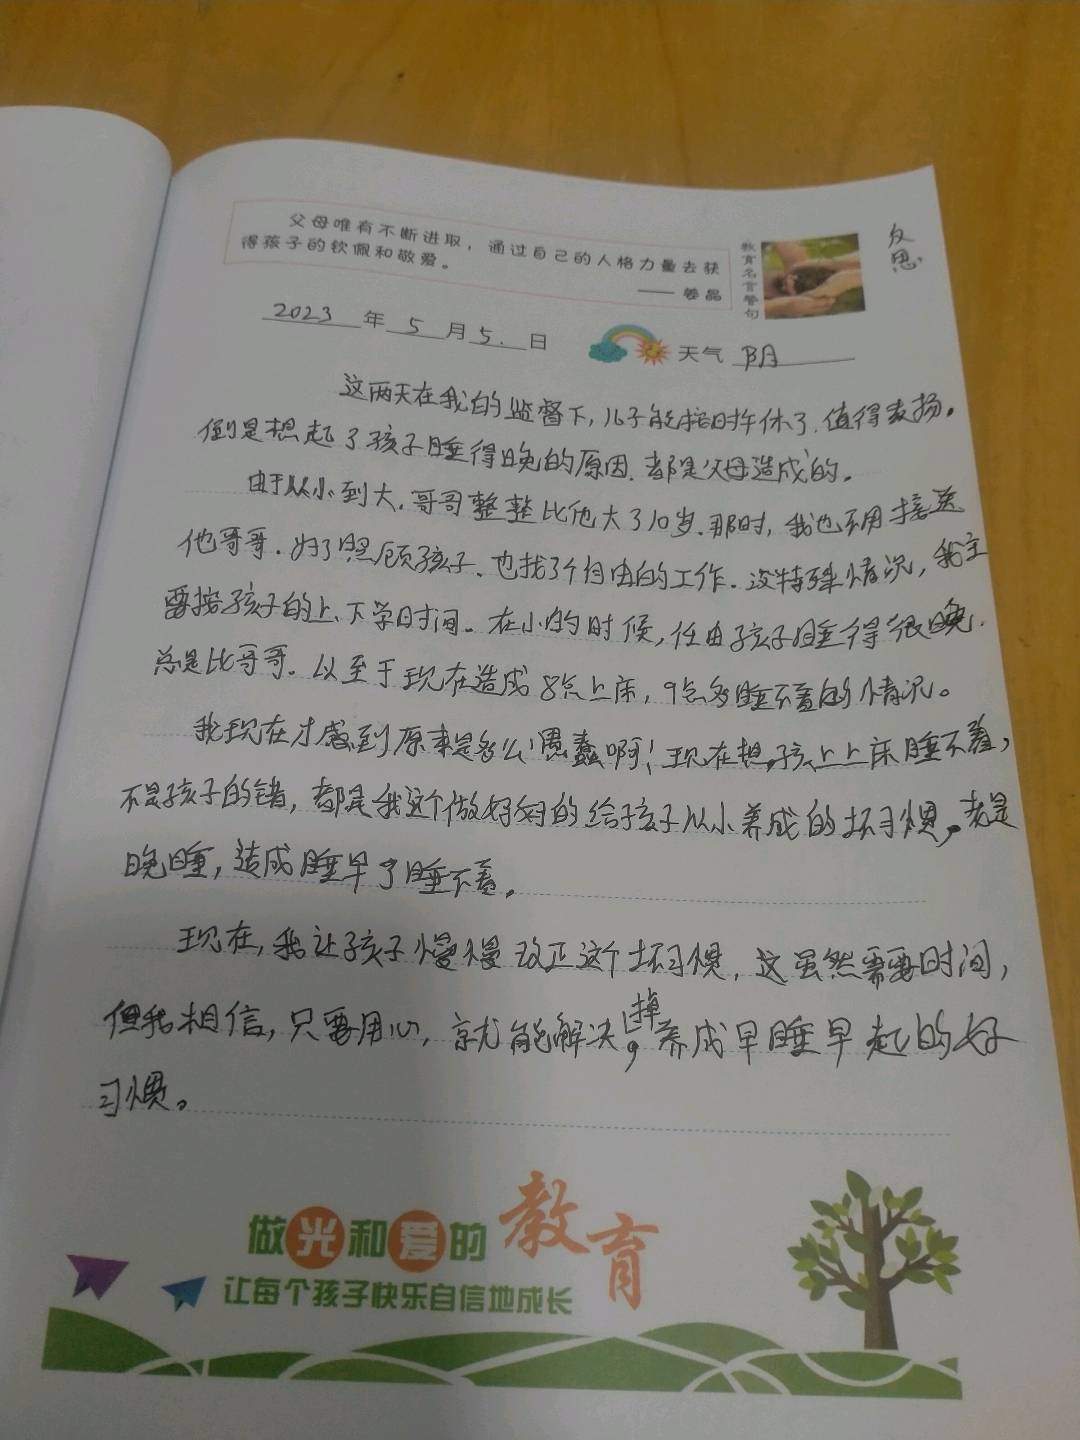 父母唯有不断进取，通过自己的人格力量去获
得孩子的钦佩和敬爱。
—— 姜晶
教育名言警句
反思
2023 年 5 月 5. 日
天气 阴
这两天在我的监督下，儿子能按时午休了，值得表扬。
倒是想起了孩子睡得晚的原因，都是父母造成的。
由于从小到大，哥哥整整比他大了10岁，那时，我也不用接送
他哥哥，为了照顾孩子，也找了个自由的工作，没特殊情况，我主
要按孩子的上、下学时间。在小的时候，任由孩子睡得很晚，
总是比哥哥。以至于现在造成8点上床，9点多睡不着的情况。
我现在才感到原来是多么愚蠢啊！现在想，孩上上床睡不着，
不是孩子的错，都是我这个做妈妈的给孩子从小养成的坏习惯，老是
晚睡，造成睡早了睡不着。
现在，我让孩子慢慢改正这个坏习惯，这虽然需要时间，
但我相信，只要用心，就能解决掉，养成早睡早起的好
习惯。
做光和爱的教育
让每个孩子快乐自信地成长